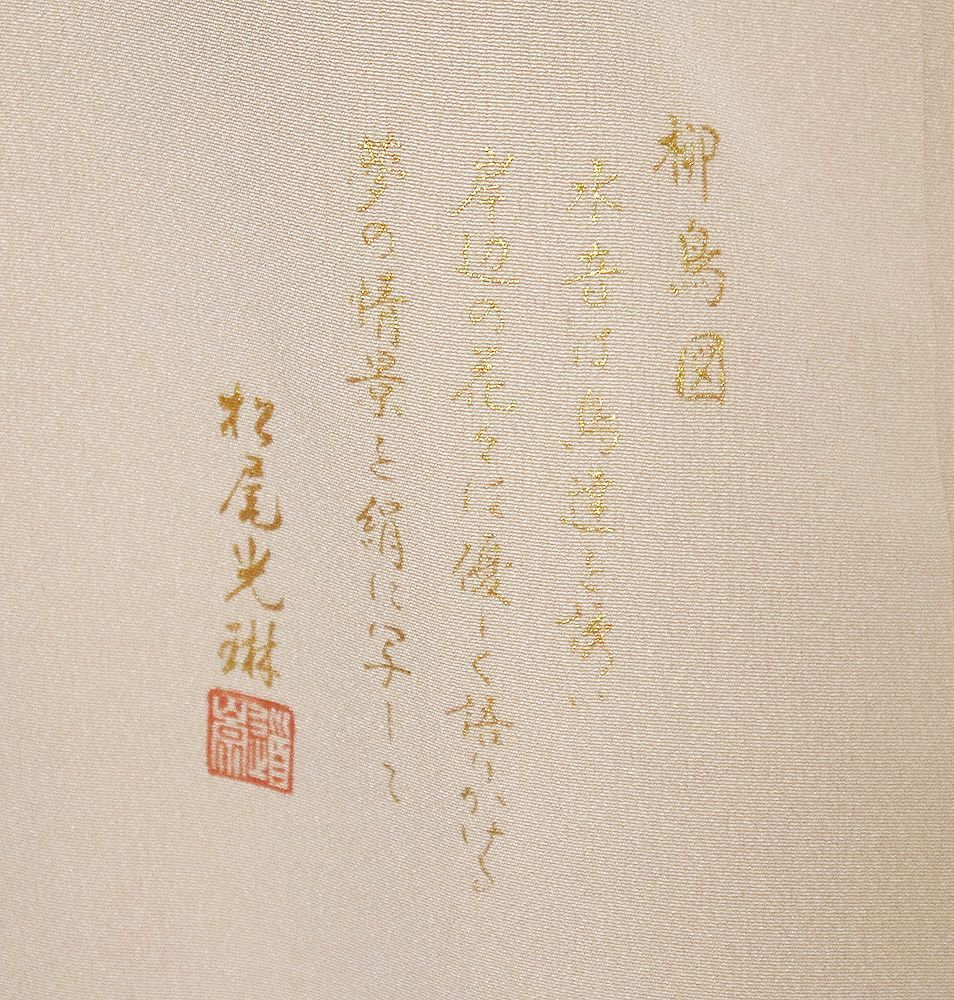 柳鳥図
水音は鳥達を誘い、
岸辺の花々は優しく語りかける。
夢の情景を絹に写して
松尾光琳